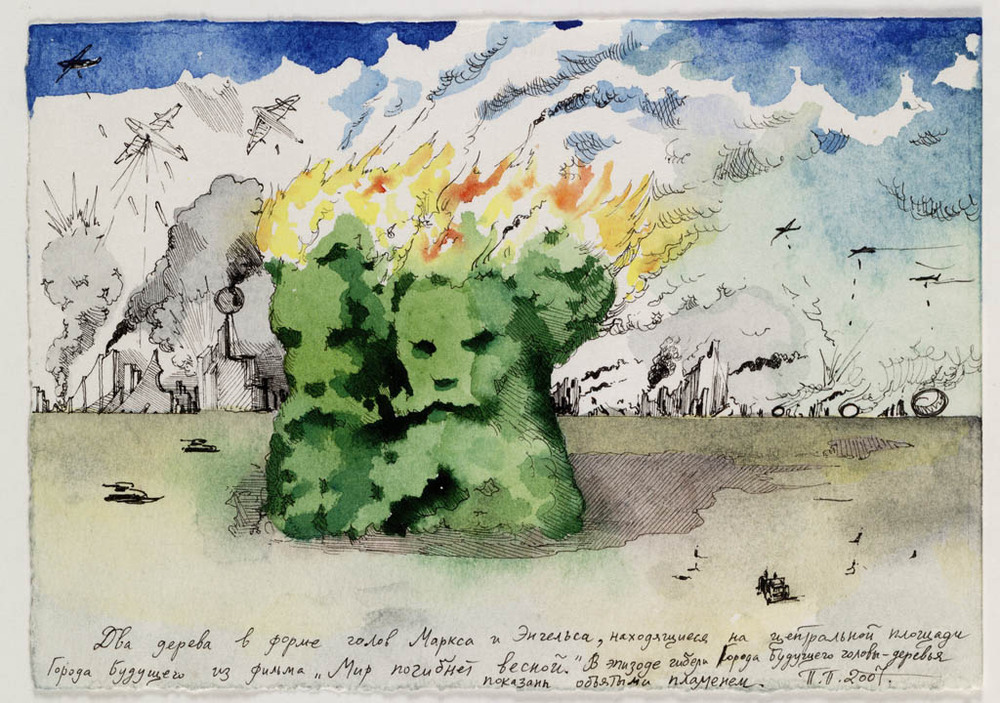 Два дерева в форме голов Маркса и Энгельса, находящиеся на центральной площади
Города Будущего из фильма „Мир погибнет весной." В эпизоде гибели Города Будущего головы-деревья
показаны объятыми пламенем. П.П. 2001.